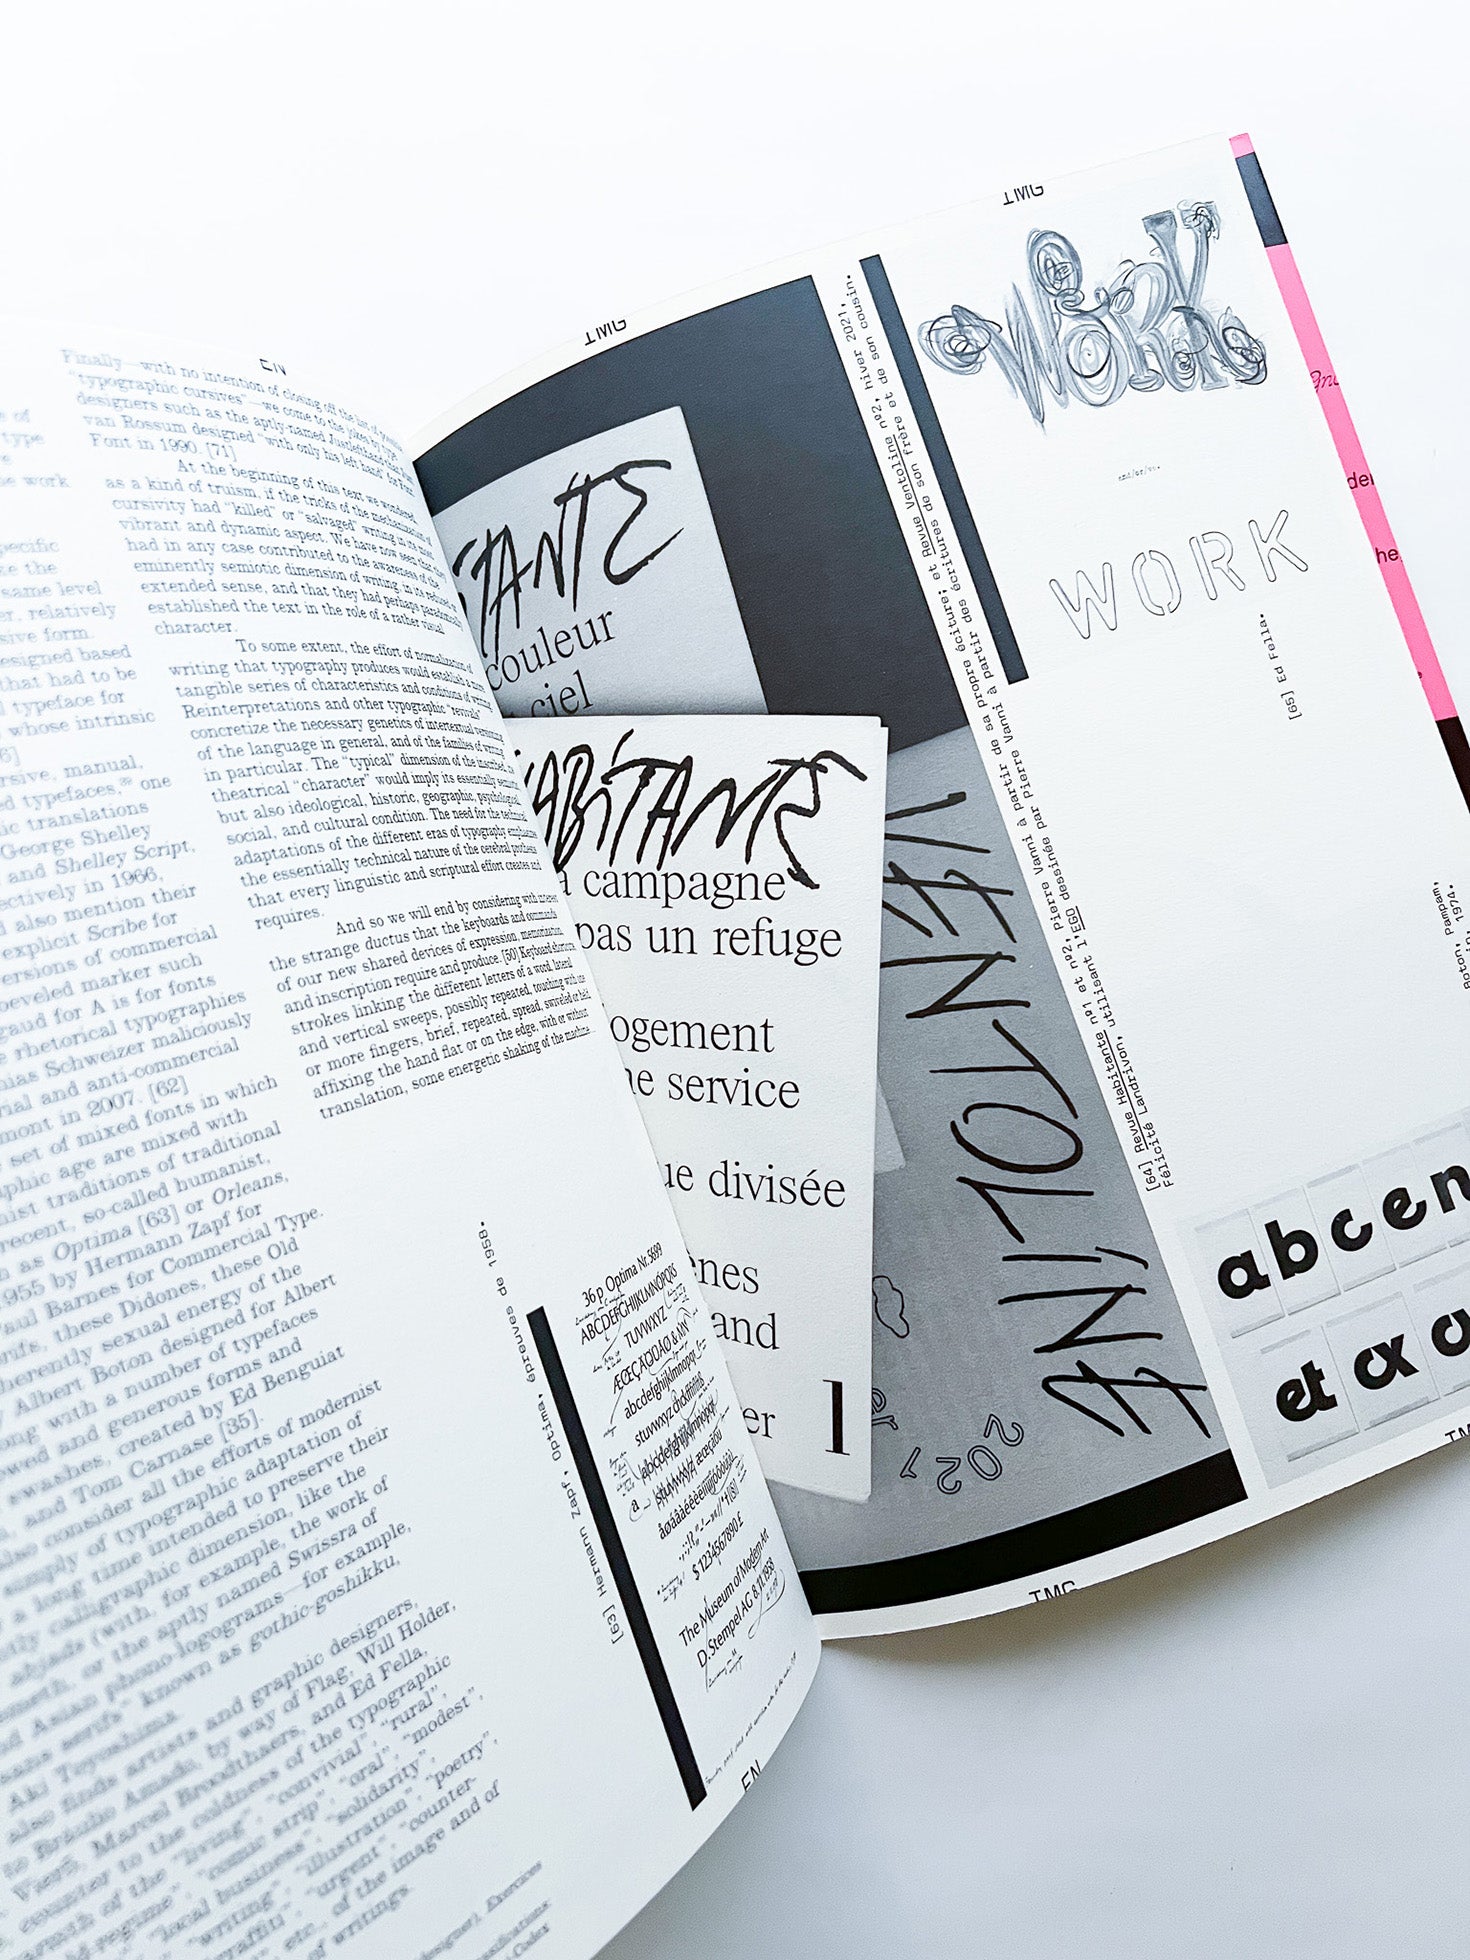 EN
of
type
e work
pecific
ke the
same level
er, relatively
sive form.
esigned based
that had to be
l typeface for
whose intrinsic
6]
rsive, manual,
ed typefaces, one
ic translations
George Shelley
and Shelley Script,
ectively in 1966,
also mention their
explicit Scribe for
ersions of commercial
beveled marker such
gaud for A is for fonts
e rhetorical typographies
hias Schweizer maliciously
rial and anti-commercial
mont in 2007. [62]
set of mixed fonts in which
aphic age are mixed with
nist traditions of traditional
recent, so-called humanist,
h as Optima [63] or Orleans,
1955 by Hermann Zapf for
Paul Barnes for Commercial Type.
rifs, these Didones, these Old
herently sexual energy of the
y Albert Boton designed for Albert
ong with a number of typefaces
owed and generous forms and
swashes, created by Ed Benguiat
, and Tom Carnase [35].
also consider all the efforts of modernist
simply of typographic adaptation of
a long time intended to preserve their
tly calligraphic dimension, like the
abjads (with, for example, the work of
ometh, or the aptly named Swissra of
d Asian phono-logograms—for example,
sans serifs" known as gothic-goshikku,
Aki Toyoshima.
also finds artists and graphic designers,
to Bráulio Amado, by way of Flag, Will Holder,
Vieti, Marcel Broodthaers, and Ed Fella,
counter to the coldness of the typographic
armth of the "living", "convivial", "rural",
ld regime", "comic strip", "oral", "modest",
"local business", "solidarity",
"writing", "illustration", "poetry",
graffiti", "urgent", "counter-
etc., of the image and of
of writings.
designer), Exercices
Codex
Finally—with no intention of closing off the list of possible
"typographic cursives"—we come to the jokes by type
designers such as the aptly-named Justlefthand that
van Rossum designed "with only his left hand" for
Font in 1990. [71]
At the beginning of this text we wondered,
as a kind of truism, if the tricks of the mechanization of
cursivity had "killed" or "salvaged" writing in its most
vibrant and dynamic aspect. We have now seen that they
had in any case contributed to the awareness of the
eminently semiotic dimension of writing, in its reduced or
extended sense, and that they had perhaps paradoxically
established the text in the role of a rather visual
character.
To some extent, the effort of normalization of
writing that typography produces would establish a more
tangible series of characteristics and conditions of writing.
Reinterpretations and other typographic "revivals"
concretize the necessary genetics of intertextual versioning
of the language in general, and of the families of writing
in particular. The "typical" dimension of the inscribed, the
theatrical "character" would imply its essentially semiotic
but also ideological, historic, geographic, psychological,
social, and cultural condition. The need for the technical
adaptations of the different eras of typography emphasizes
the essentially technical nature of the cerebral prothesis
that every linguistic and scriptural effort creates and
requires.
And so we will end by considering with interest
the strange ductus that the keyboards and commands
of our new shared devices of expression, memorization,
and inscription require and produce. [50] Keyboard shortcuts,
strokes linking the different letters of a word, lateral
and vertical sweeps, possibly repeated, touching with one
or more fingers, brief, repeated, spread, swiveled or held,
affixing the hand flat or on the edge, with or without
translation, some energetic shaking of the machine...
[63] Hermann Zapf, Optima, épreuves de 1958.
36 p Optima Nr. 5699
ABCDEFGHIJKLMNOPQRS
TUVWXYZ
ÆŒÇÄÖÜÅØ & MN
abcdefghijklmnopqr
stuvwxyz chckfffiflß
abcdefghijklmnopqr
stuvwxyz æœçäöü
a
$ 1234567890 £
The Museum of Modern Art
D. Stempel AG 8.11.1958
EN
IMG
ITANTS
couleur
ciel
HABITANTS
a campagne
pas un refuge
ogement
ne service
ue divisée
ènes
and
er
1
VENTOLINE
2021
2021
IMG
[64] Revue Habitante nº1 et nº2, Pierre Vanni à partir de sa propre écriture; et Revue Ventoline nº2, hiver 2021,
Félicité Landrivon, utilisant l'EGO dessinée par Pierre Vanni à partir des écritures de son frère et de son cousin.
IMG
Work
and/or/us.
WORK
[65] Ed Fella.
Boton, Pampam,
1974.
abcen
et
IMG
der
he